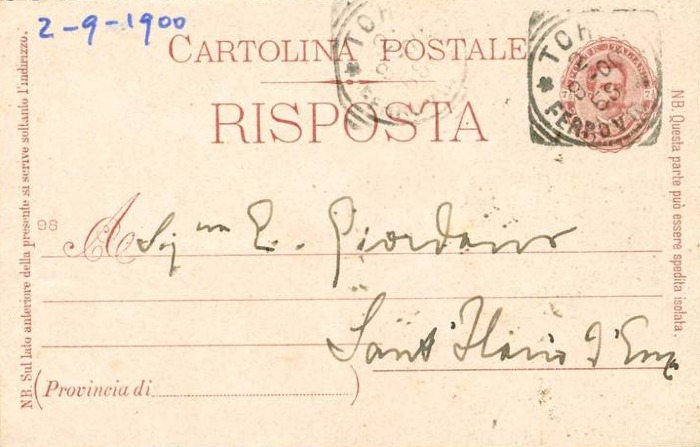 2-9-1900
CARTOLINA POSTALE
RISPOSTA
TOR
TOR
FERROVIA
98
A Sigra E. Giordano
Sant'Ilario d'Enza
(Provincia di)
NB. Sul lato anteriore della presente si scrive soltanto l'indirizzo.
NB. Questa parte può essere spedita isolata.